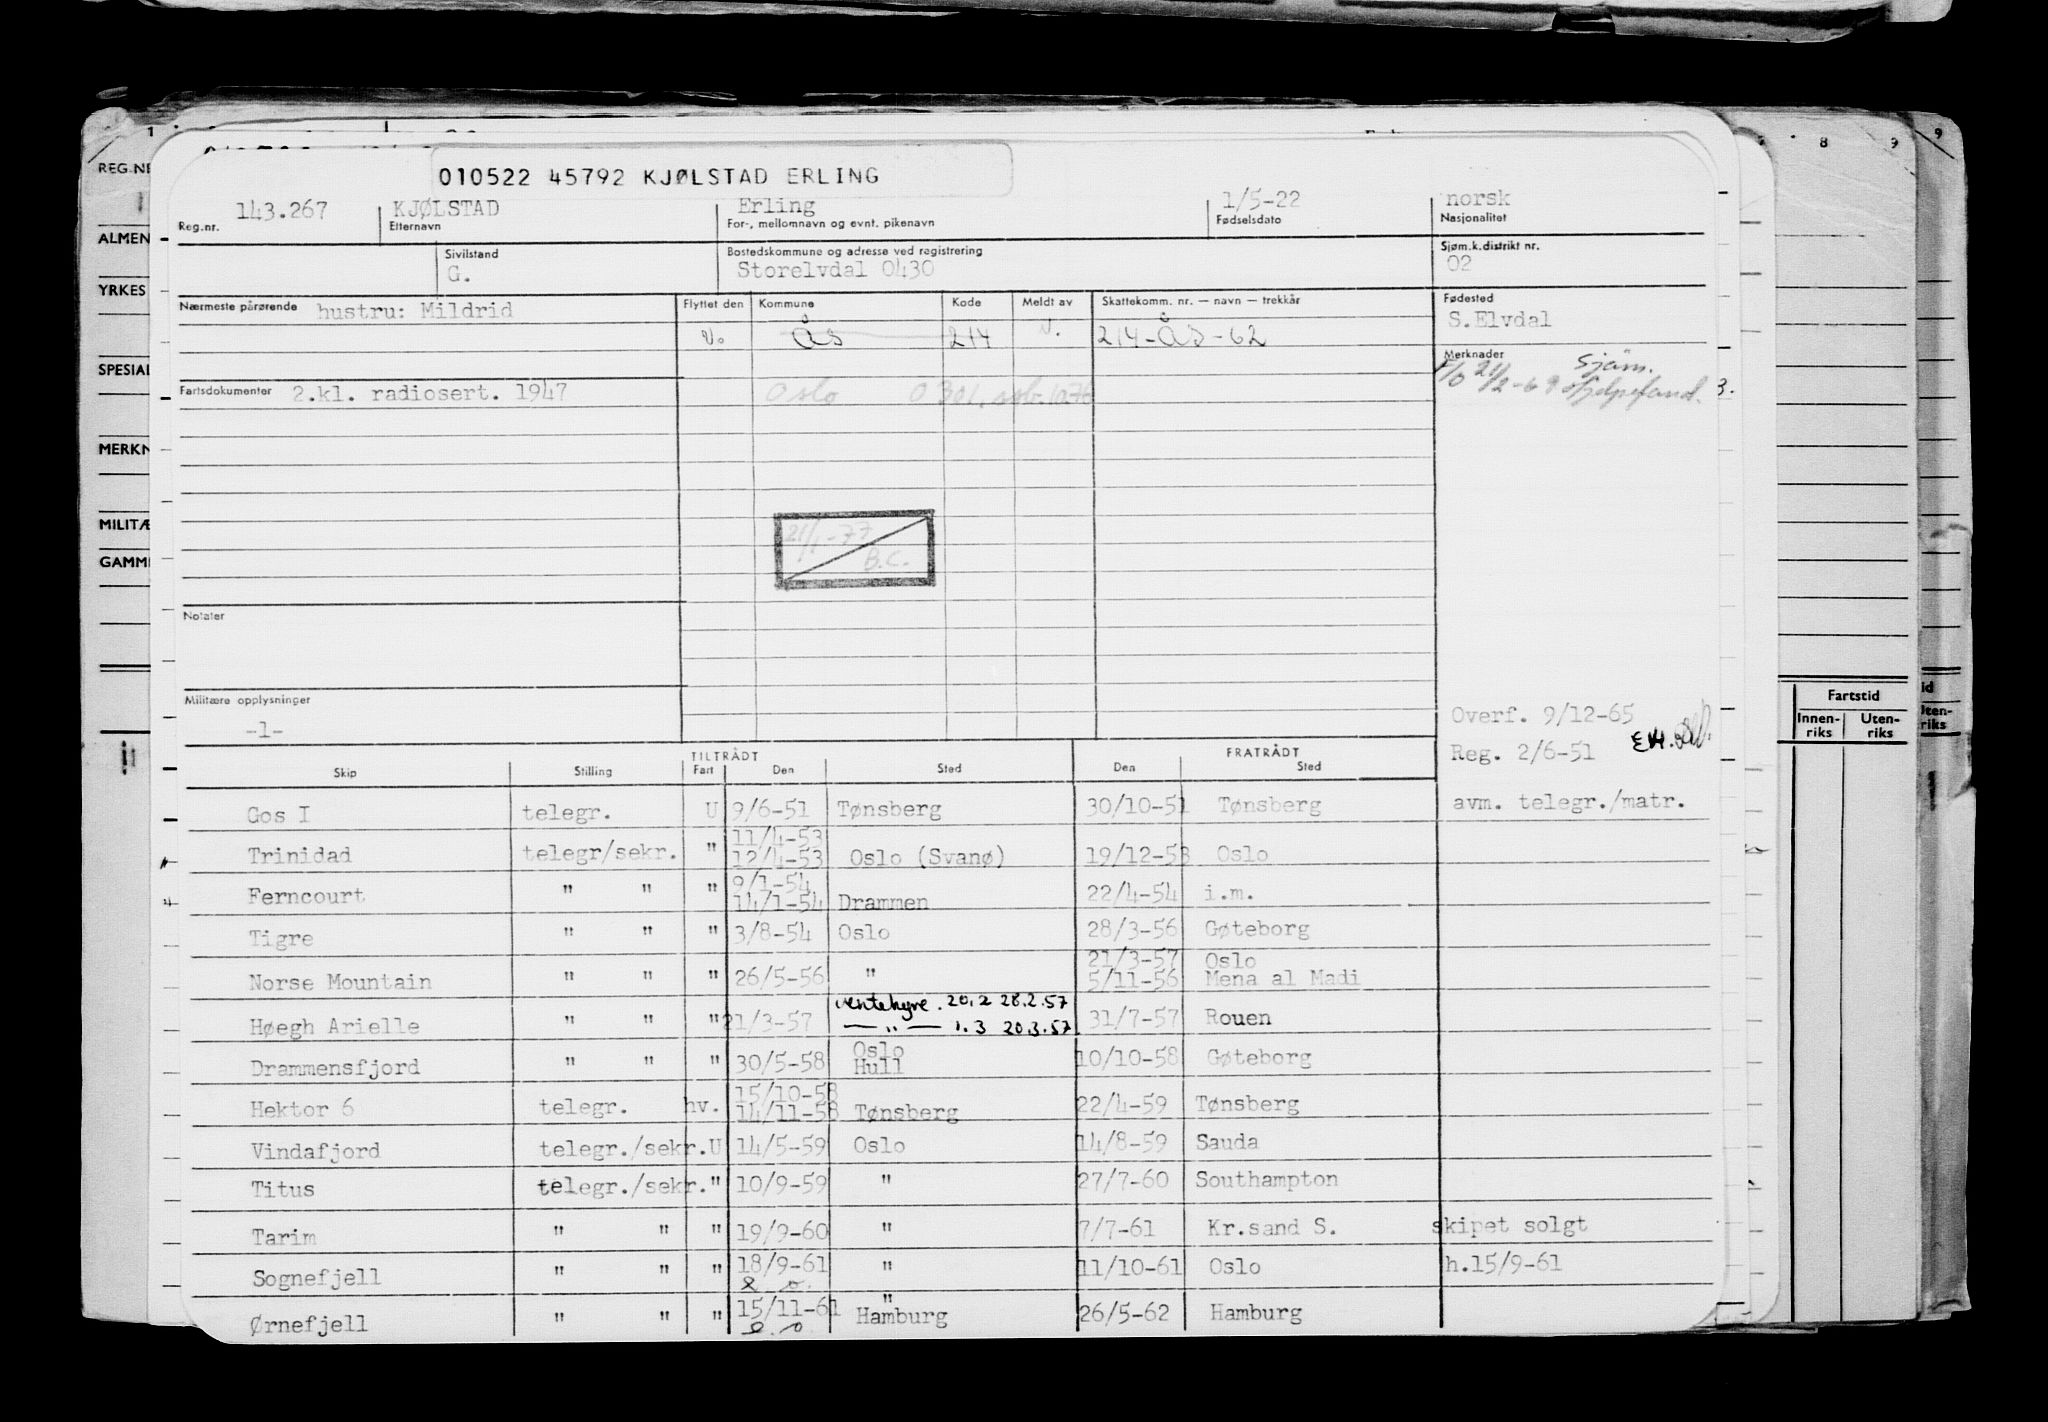 1 8 9 9
REG.NR
ALMEN
YRKES
SPESIAL
MERKN
MILITÆ
GAMM
010522 45792 KJØLSTAD ERLING
143.267 KJØLSTAD Erling 1/5-22 norsk
Reg.nr. Etternavn For-, mellomnavn og evnt. pikenavn Fødselsdato Nasjonalitet
Sivilstand Bostedskommune og adresse ved registrering Sjøm.k.distrikt nr.
G. Storelvdal 0430 02
Nærmeste pårørende hustru: Mildrid Flyttet den Kommune Kode Meldt av Skattekomm. nr. — navn — trekkår Fødested
S.Elvdal
Ås 214 214-ÅS-62
Merknader
Fartsdokumenter 2.kl. radiosert. 1947 Oslo 0301
21/1-77
B.C.
Notater
Militære opplysninger
-1-
Overf. 9/12-65
Reg. 2/6-51
avm. telegr./matr.
TILTRÅDT FRATRÅDT
Skip Stilling Fart Den Sted Den Sted
Gos I telegr. U 9/6-51 Tønsberg 30/10-51 Tønsberg
11/4-53
Trinidad telegr/sekr. " 12/4-53 Oslo (Svanø) 19/12-53 Oslo
9/1-54
Ferncourt " " " 14/1-54 Drammen 22/4-54 i.m.
Tigre " " " 3/8-54 Oslo 28/3-56 Gøteborg
21/3-57 Oslo
Norse Mountain " " " 26/5-56 " 5/11-56 Mena al Madi
ventehyre. 20.2 28.2.57
Høegh Arielle " " " 21/3-57 — " — 1.3 20.3.57 31/7-57 Rouen
Oslo
Drammensfjord " " " 30/5-58 Hull 10/10-58 Gøteborg
15/10-58
Hektor 6 telegr. hv. 14/11-58 Tønsberg 22/4-59 Tønsberg
Vindafjord telegr./sekr. U 14/5-59 Oslo 14/8-59 Sauda
Titus telegr./sekr. " 10/9-59 " 27/7-60 Southampton
Tarim " " " 19/9-60 " 7/7-61 Kr.sand S. skipet solgt
Sognefjell " " " 18/9-61 " 11/10-61 Oslo h.15/9-61
"
Ørnefjell " " " 15/11-61 Hamburg 26/5-62 Hamburg
Fartstid
Innen-riks Uten-riks